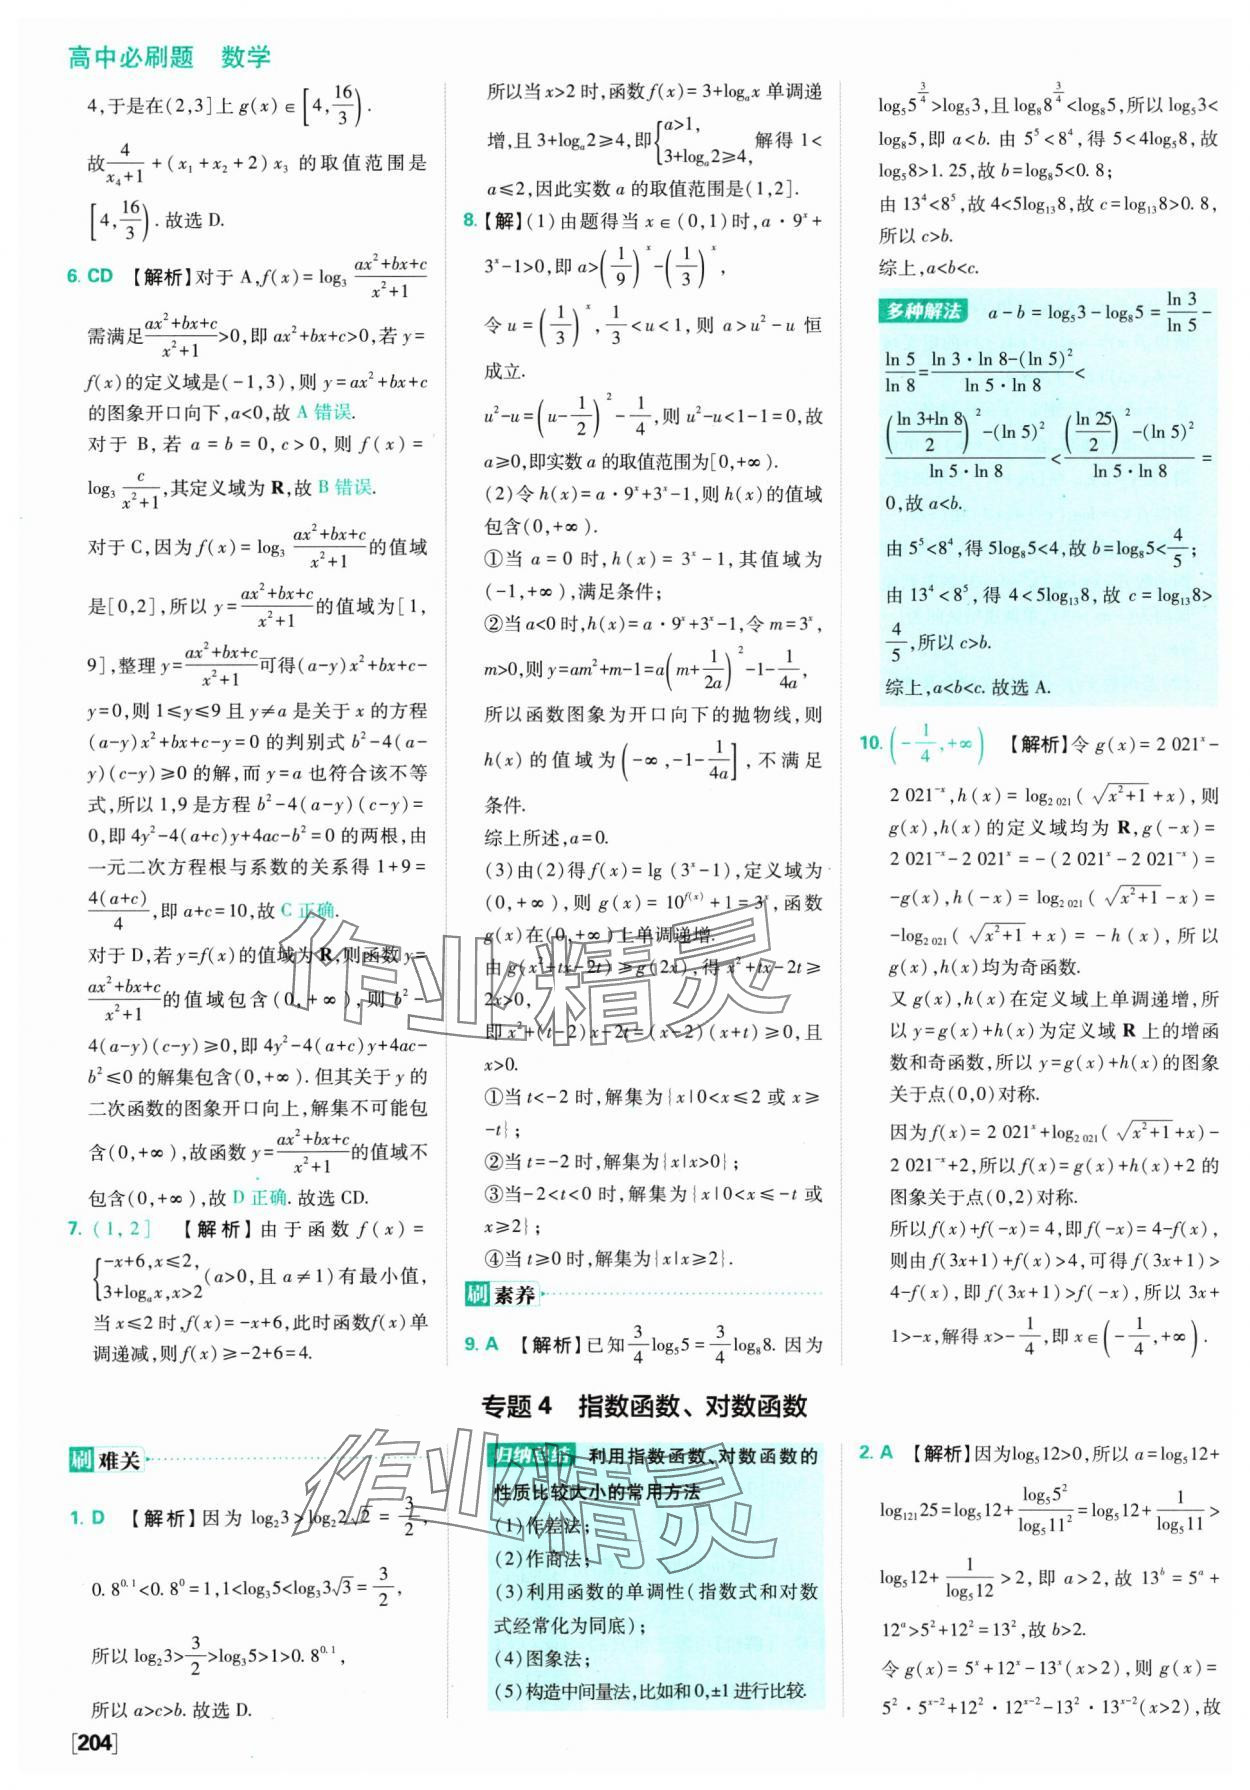 高中必刷题 数学
4,于是在(2,3]上 g(x)∈[4,16/3).
故4/(x₄+1)+(x₁+x₂+2)x₃ 的取值范围是
[4,16/3).故选 D.
6. CD 【解析】对于 A,f(x)=log₃ (ax²+bx+c)/(x²+1)
需满足(ax²+bx+c)/(x²+1)>0,即 ax²+bx+c>0,若 y=
f(x)的定义域是(-1,3),则 y=ax²+bx+c
的图象开口向下,a<0,故 A 错误.
对于 B,若 a=b=0,c>0,则 f(x)=
log₃ c/(x²+1),其定义域为 R,故 B 错误.
对于 C,因为 f(x)=log₃ (ax²+bx+c)/(x²+1)的值域
是[0,2],所以 y=(ax²+bx+c)/(x²+1)的值域为[1,
9],整理 y=(ax²+bx+c)/(x²+1)可得(a-y)x²+bx+c-
y=0,则 1≤y≤9 且 y≠a 是关于 x 的方程
(a-y)x²+bx+c-y=0 的判别式 b²-4(a-
y)(c-y)≥0 的解,而 y=a 也符合该不等
式,所以 1,9 是方程 b²-4(a-y)(c-y)=
0,即 4y²-4(a+c)y+4ac-b²=0 的两根,由
一元二次方程根与系数的关系得 1+9=
4(a+c)/4,即 a+c=10,故 C 正确.
对于 D,若 y=f(x)的值域为 R,则函数 y=
(ax²+bx+c)/(x²+1)的值域包含(0,+∞),则 b²-
4(a-y)(c-y)≥0,即 4y²-4(a+c)y+4ac-
b²≤0 的解集包含(0,+∞).但其关于 y 的
二次函数的图象开口向上,解集不可能包
含(0,+∞),故函数 y=(ax²+bx+c)/(x²+1)的值域不
包含(0,+∞),故 D 正确.故选 CD.
7. (1,2] 【解析】由于函数 f(x)=
{-x+6,x≤2,
3+logₐx,x>2(a>0,且 a≠1)有最小值,
当 x≤2 时,f(x)=-x+6,此时函数f(x)单
调递减,则 f(x)≥-2+6=4.
所以当 x>2 时,函数 f(x)=3+logₐx 单调递
增,且 3+logₐ2≥4,即{a>1,
3+logₐ2≥4,解得 1<
a≤2,因此实数 a 的取值范围是(1,2].
8.【解】(1)由题得当 x∈(0,1)时,a·9ˣ+
3ˣ-1>0,即 a>(1/9)ˣ-(1/3)ˣ,
令 u=(1/3)ˣ,1/3<u<1,则 a>u²-u 恒
成立.
u²-u=(u-1/2)²-1/4,则 u²-u<1-1=0,故
a≥0,即实数 a 的取值范围为[0,+∞).
(2)令 h(x)=a·9ˣ+3ˣ-1,则 h(x)的值域
包含(0,+∞).
①当 a=0 时,h(x)=3ˣ-1,其值域为
(-1,+∞),满足条件;
②当 a<0 时,h(x)=a·9ˣ+3ˣ-1,令 m=3ˣ,
m>0,则 y=am²+m-1=a(m+1/2a)²-1-1/4a,
所以函数图象为开口向下的抛物线,则
h(x)的值域为(-∞,-1-1/4a],不满足
条件.
综上所述,a=0.
(3)由(2)得 f(x)=lg(3ˣ-1),定义域为
(0,+∞),则 g(x)=10^f(x)+1=3ˣ,函数
g(x)在(0,+∞)上单调递增.
由 g(x²+tx-2t)≥g(2x),得 x²+tx-2t≥
2x>0,
即 x²+(t-2)x-2t=(x-2)(x+t)≥0,且
x>0.
①当 t<-2 时,解集为{x|0<x≤2 或 x≥
-t};
②当 t=-2 时,解集为{x|x>0};
③当-2<t<0 时,解集为{x|0<x≤-t 或
x≥2};
④当 t≥0 时,解集为{x|x≥2}.
刷 素养
9. A 【解析】已知3/4log₅5=3/4log₈8.因为
log₅5^(3/4)>log₅3,且 log₈8^(3/4)<log₈5,所以 log₅3<
log₈5,即 a<b.由 5⁵<8⁴,得 5<4log₅8,故
log₅8>1.25,故 b=log₈5<0.8;
由 13⁴<8⁵,故 4<5log₁₃8,故 c=log₁₃8>0.8,
所以 c>b.
综上,a<b<c.
多种解法 a-b=log₅3-log₈5=ln 3/ln 5-
ln 5/ln 8=(ln 3·ln 8-(ln 5)²)/(ln 5·ln 8)<
(((ln 3+ln 8)/2)²-(ln 5)²)/(ln 5·ln 8)<((ln 25/2)²-(ln 5)²)/(ln 5·ln 8)=
0,故 a<b.
由 5⁵<8⁴,得 5log₈5<4,故 b=log₈5<4/5;
由 13⁴<8⁵,得 4<5log₁₃8,故 c=log₁₃8>
4/5,所以 c>b.
综上,a<b<c.故选 A.
10. (-1/4,+∞) 【解析】令 g(x)=2 021ˣ-
2 021⁻ˣ,h(x)=log₂ ₀₂₁(√(x²+1)+x),则
g(x),h(x)的定义域均为 R,g(-x)=
2 021⁻ˣ-2 021ˣ=-(2 021ˣ-2 021⁻ˣ)=
-g(x),h(-x)=log₂ ₀₂₁(√(x²+1)-x)=
-log₂ ₀₂₁(√(x²+1)+x)=-h(x),所以
g(x),h(x)均为奇函数.
又 g(x),h(x)在定义域上单调递增,所
以 y=g(x)+h(x)为定义域 R 上的增函
数和奇函数,所以 y=g(x)+h(x)的图象
关于点(0,0)对称.
因为 f(x)=2 021ˣ+log₂ ₀₂₁(√(x²+1)+x)-
2 021⁻ˣ+2,所以 f(x)=g(x)+h(x)+2 的
图象关于点(0,2)对称.
所以 f(x)+f(-x)=4,即 f(-x)=4-f(x),
则由 f(3x+1)+f(x)>4,可得 f(3x+1)>
4-f(x),即 f(3x+1)>f(-x),所以 3x+
1>-x,解得 x>-1/4,即 x∈(-1/4,+∞).
专题 4 指数函数、对数函数
刷 难关
1. D 【解析】因为 log₂3>log₂2√2=3/2,
0.8⁰·¹<0.8⁰=1,1<log₃5<log₃3√3=3/2,
所以 log₂3>3/2>log₃5>1>0.8⁰·¹,
所以 a>c>b.故选 D.
归纳总结 利用指数函数、对数函数的
性质比较大小的常用方法
(1)作差法;
(2)作商法;
(3)利用函数的单调性(指数式和对数
式经常化为同底);
(4)图象法;
(5)构造中间量法,比如和 0,±1 进行比较.
2. A 【解析】因为log₅12>0,所以 a=log₅12+
log₁₂₁25=log₅12+log₅5²/log₅11²=log₅12+1/log₅11>
log₅12+1/log₅12>2,即 a>2,故 13ᵇ=5ᵃ+
12ᵃ>5²+12²=13²,故 b>2.
令 g(x)=5ˣ+12ˣ-13ˣ(x>2),则 g(x)=
5²·5ˣ⁻²+12²·12ˣ⁻²-13²·13ˣ⁻²(x>2),故
[204]
作业精灵
作业精灵